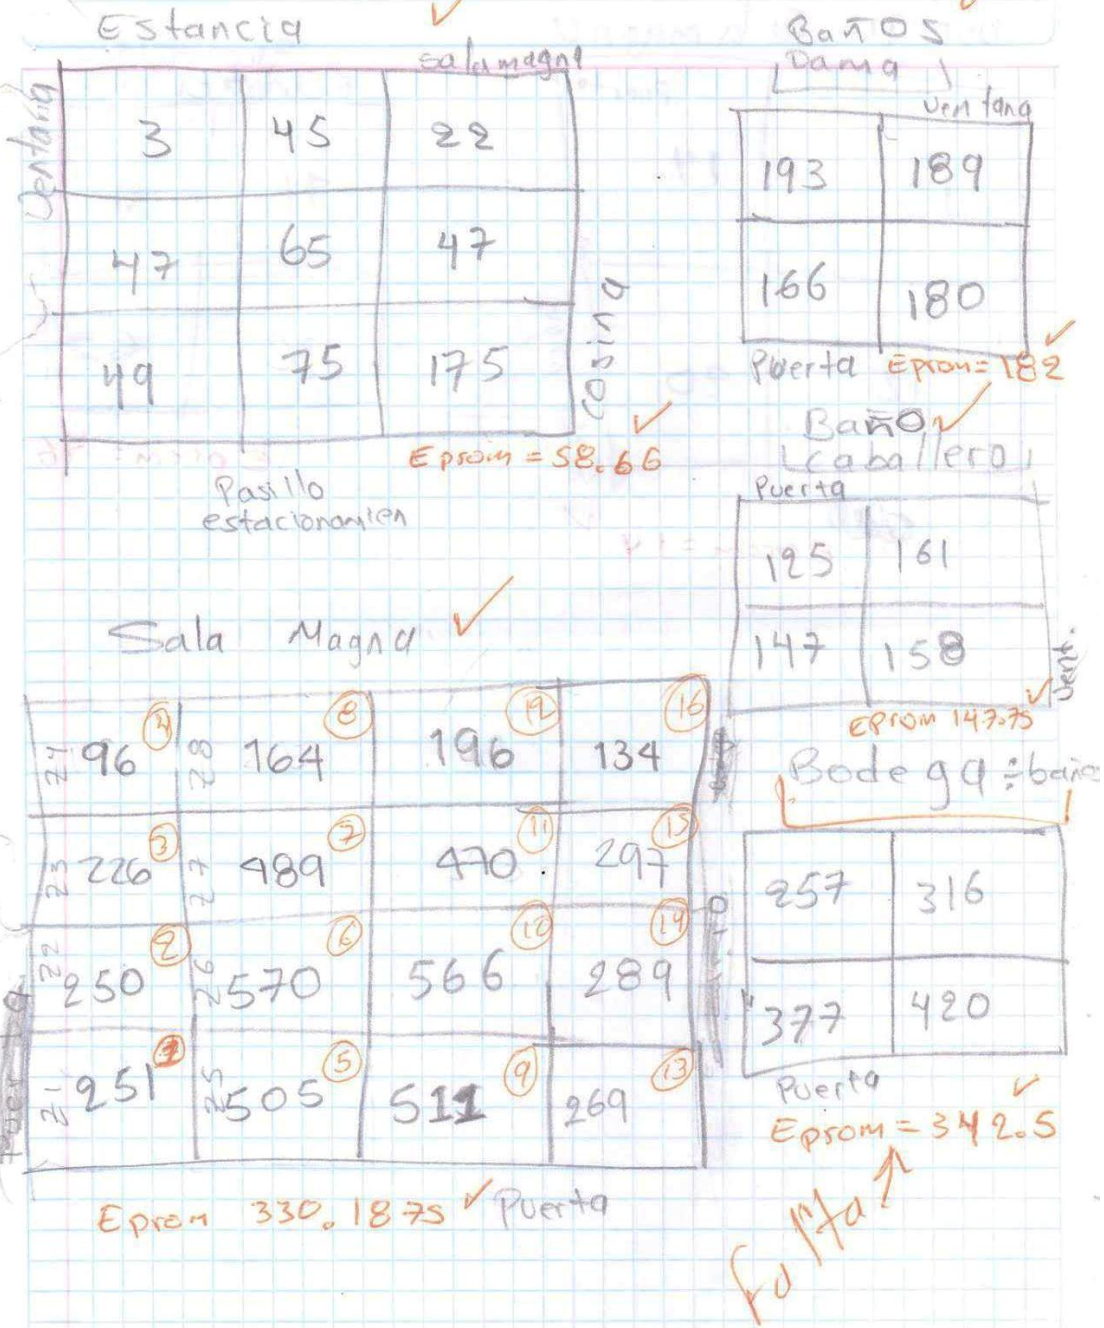 Estancia
salamagna
Ventana
3 45 22
47 65 47
49 75 175
cosina
Eprom = 58.66
Pasillo
estacionamien
Baños
Dama
Ventana
193 189
166 180
Puerta Eprom = 182
Baño
Caballero
Puerta
125 161
147 158
Vent.
EProm 147.75
Sala Magna
4 8 12 16
24 96 28 164 196 134
3 7 11 15
23 226 27 489 470 297
2 6 10 14
22 250 26 570 566 289
1 5 9 13
21 251 25 505 511 269
Eprom 330.1875 Puerta
Bodega ÷ baño
257 316
377 420
Puerta
Eprom = 342.5
falta